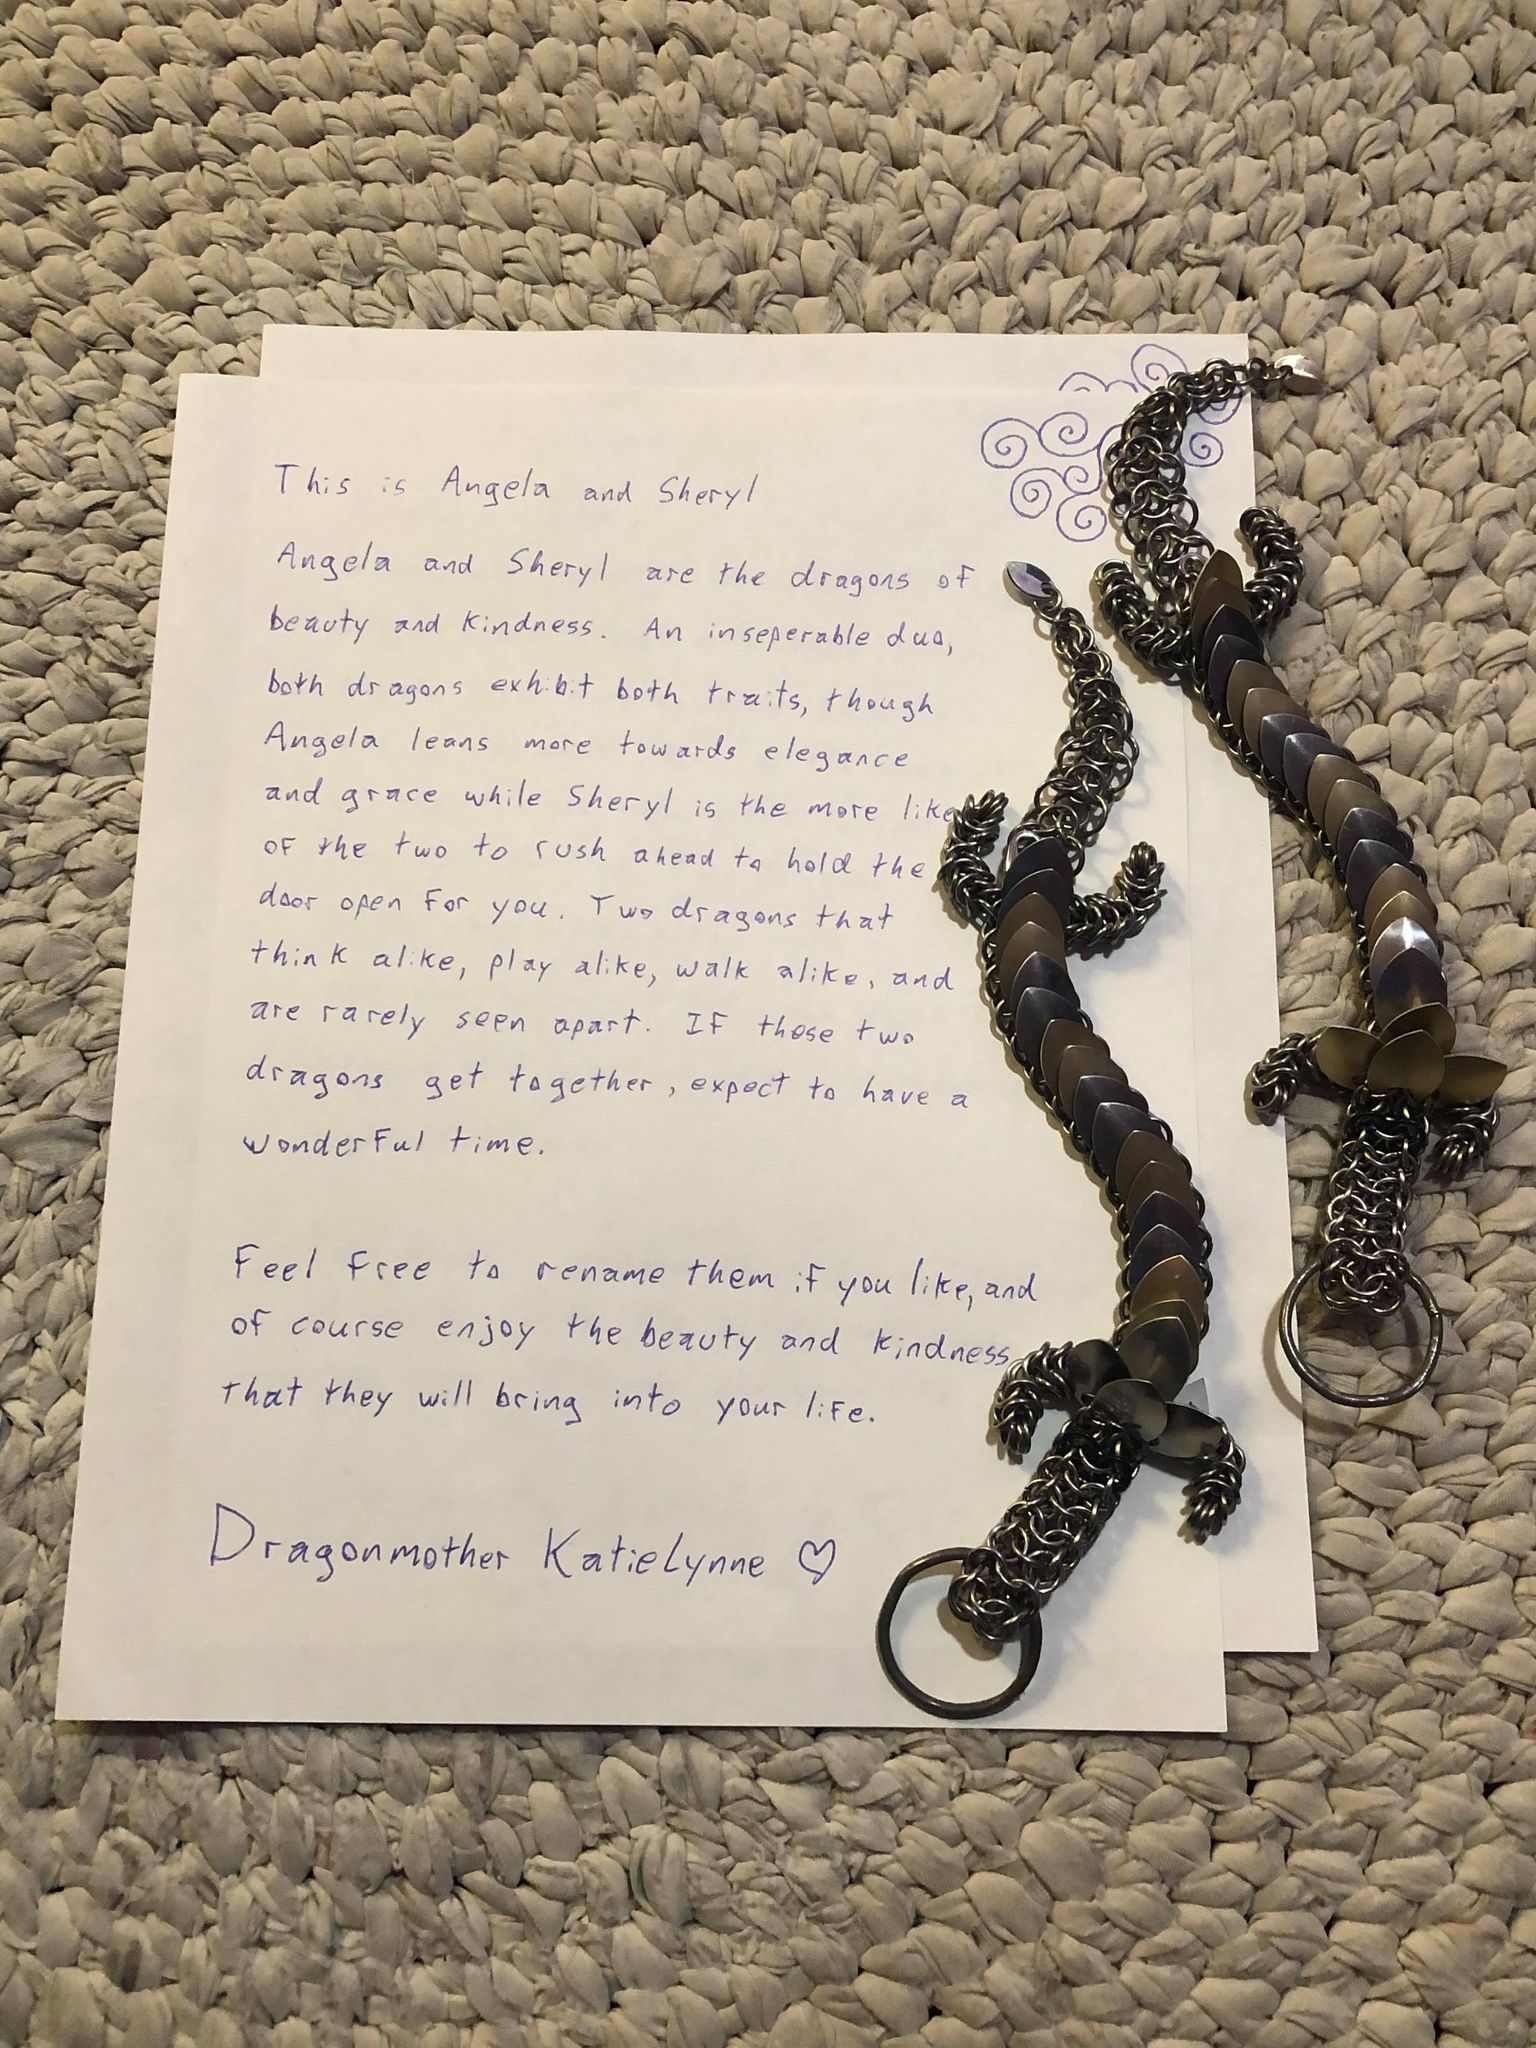 This is Angela and Sheryl
Angela and Sheryl are the dragons of
beauty and kindness. An inseperable duo,
both dragons exhibit both traits, though
Angela leans more towards elegance
and grace while Sheryl is the more like
of the two to rush ahead to hold the
door open for you. Two dragons that
think alike, play alike, walk alike, and
are rarely seen apart. If these two
dragons get together, expect to have a
wonderful time.
Feel free to rename them if you like, and
of course enjoy the beauty and kindness
that they will bring into your life.
Dragonmother KatieLynne ♡